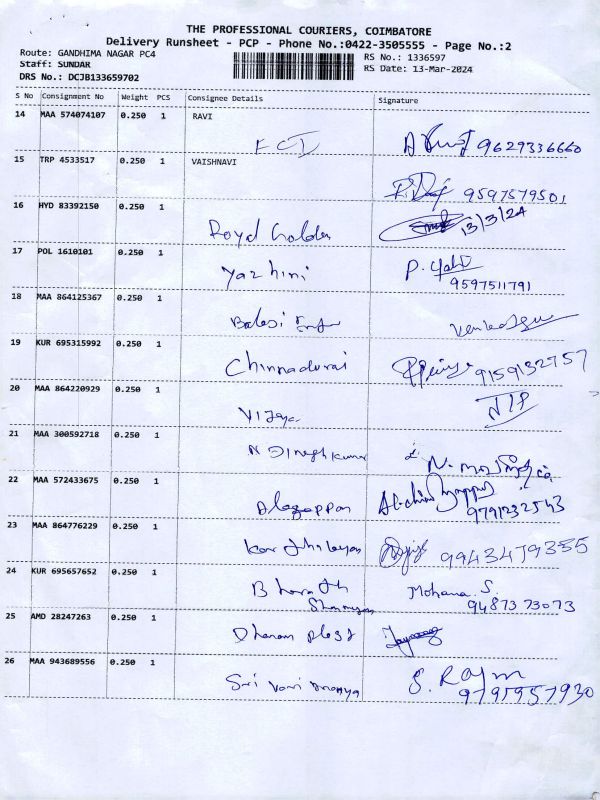 THE PROFESSIONAL COURIERS, COIMBATORE
Delivery Runsheet - PCP - Phone No.:0422-3505555 - Page No.:2
Route: GANDHIMA NAGAR PC4
RS No.: 1336597
Staff: SUNDAR
RS Date: 13-Mar-2024
DRS No.: DCJB133659702
S No Consignment No Weight PCS Consignee Details Signature
14 MAA 574074107 0.250 1 RAVI
9629336660
15 TRP 4533517 0.250 1 VAISHNAVI
9597579501
16 HYD 83392150 0.250 1
Royal 13/3/24
17 POL 1610101 0.250 1
Yazhini P.
9597511791
18 MAA 864125367 0.250 1
Balaji
19 KUR 695315992 0.250 1
Chinnadurai 9159132757
20 MAA 864220929 0.250 1
Vijaya
21 MAA 300592718 0.250 1
N Dineshkumar N.
22 MAA 572433675 0.250 1
Alagappan
9791232543
23 MAA 864776229 0.250 1
9943479355
24 KUR 695657652 0.250 1
Bharath Mohana S.
9487373073
25 AMD 28247263 0.250 1
26 MAA 943689556 0.250 1
Sri S.
9795957930